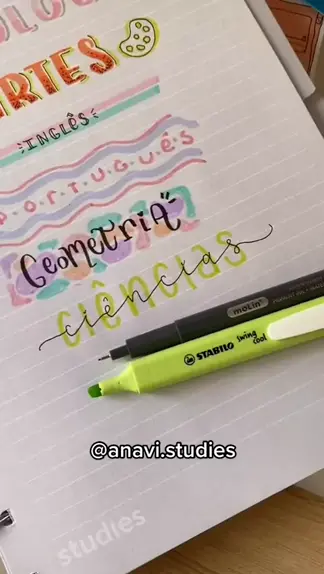 ARTES
INGLÊS
PORTUGUÊS
GEOMETRIA
ciências
moLin
STABILO swing cool
@anavi.studies
studies